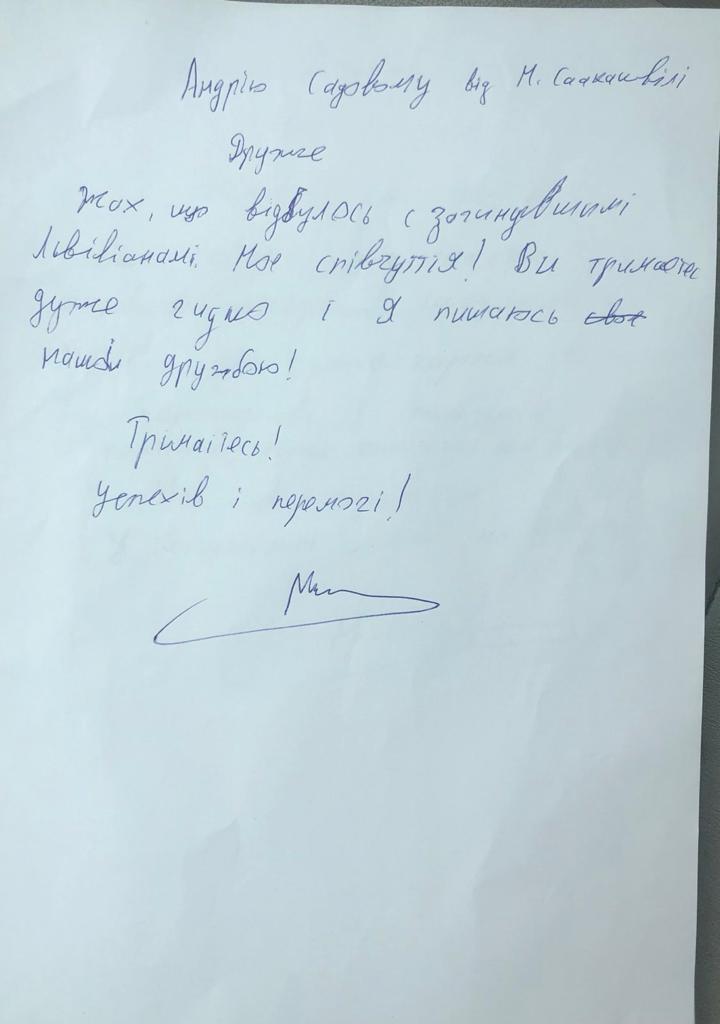 Андрію Садовому від М. Саакашвілі
Друже
Жах, що відбулось с загинувшимі
Львівіанамі. Моє співчуття! Ви тримаєтес
дуже гидно і я пишаюсь своє
нашой дружбою!
Тримаїтесь!
Успехів і перемогі!